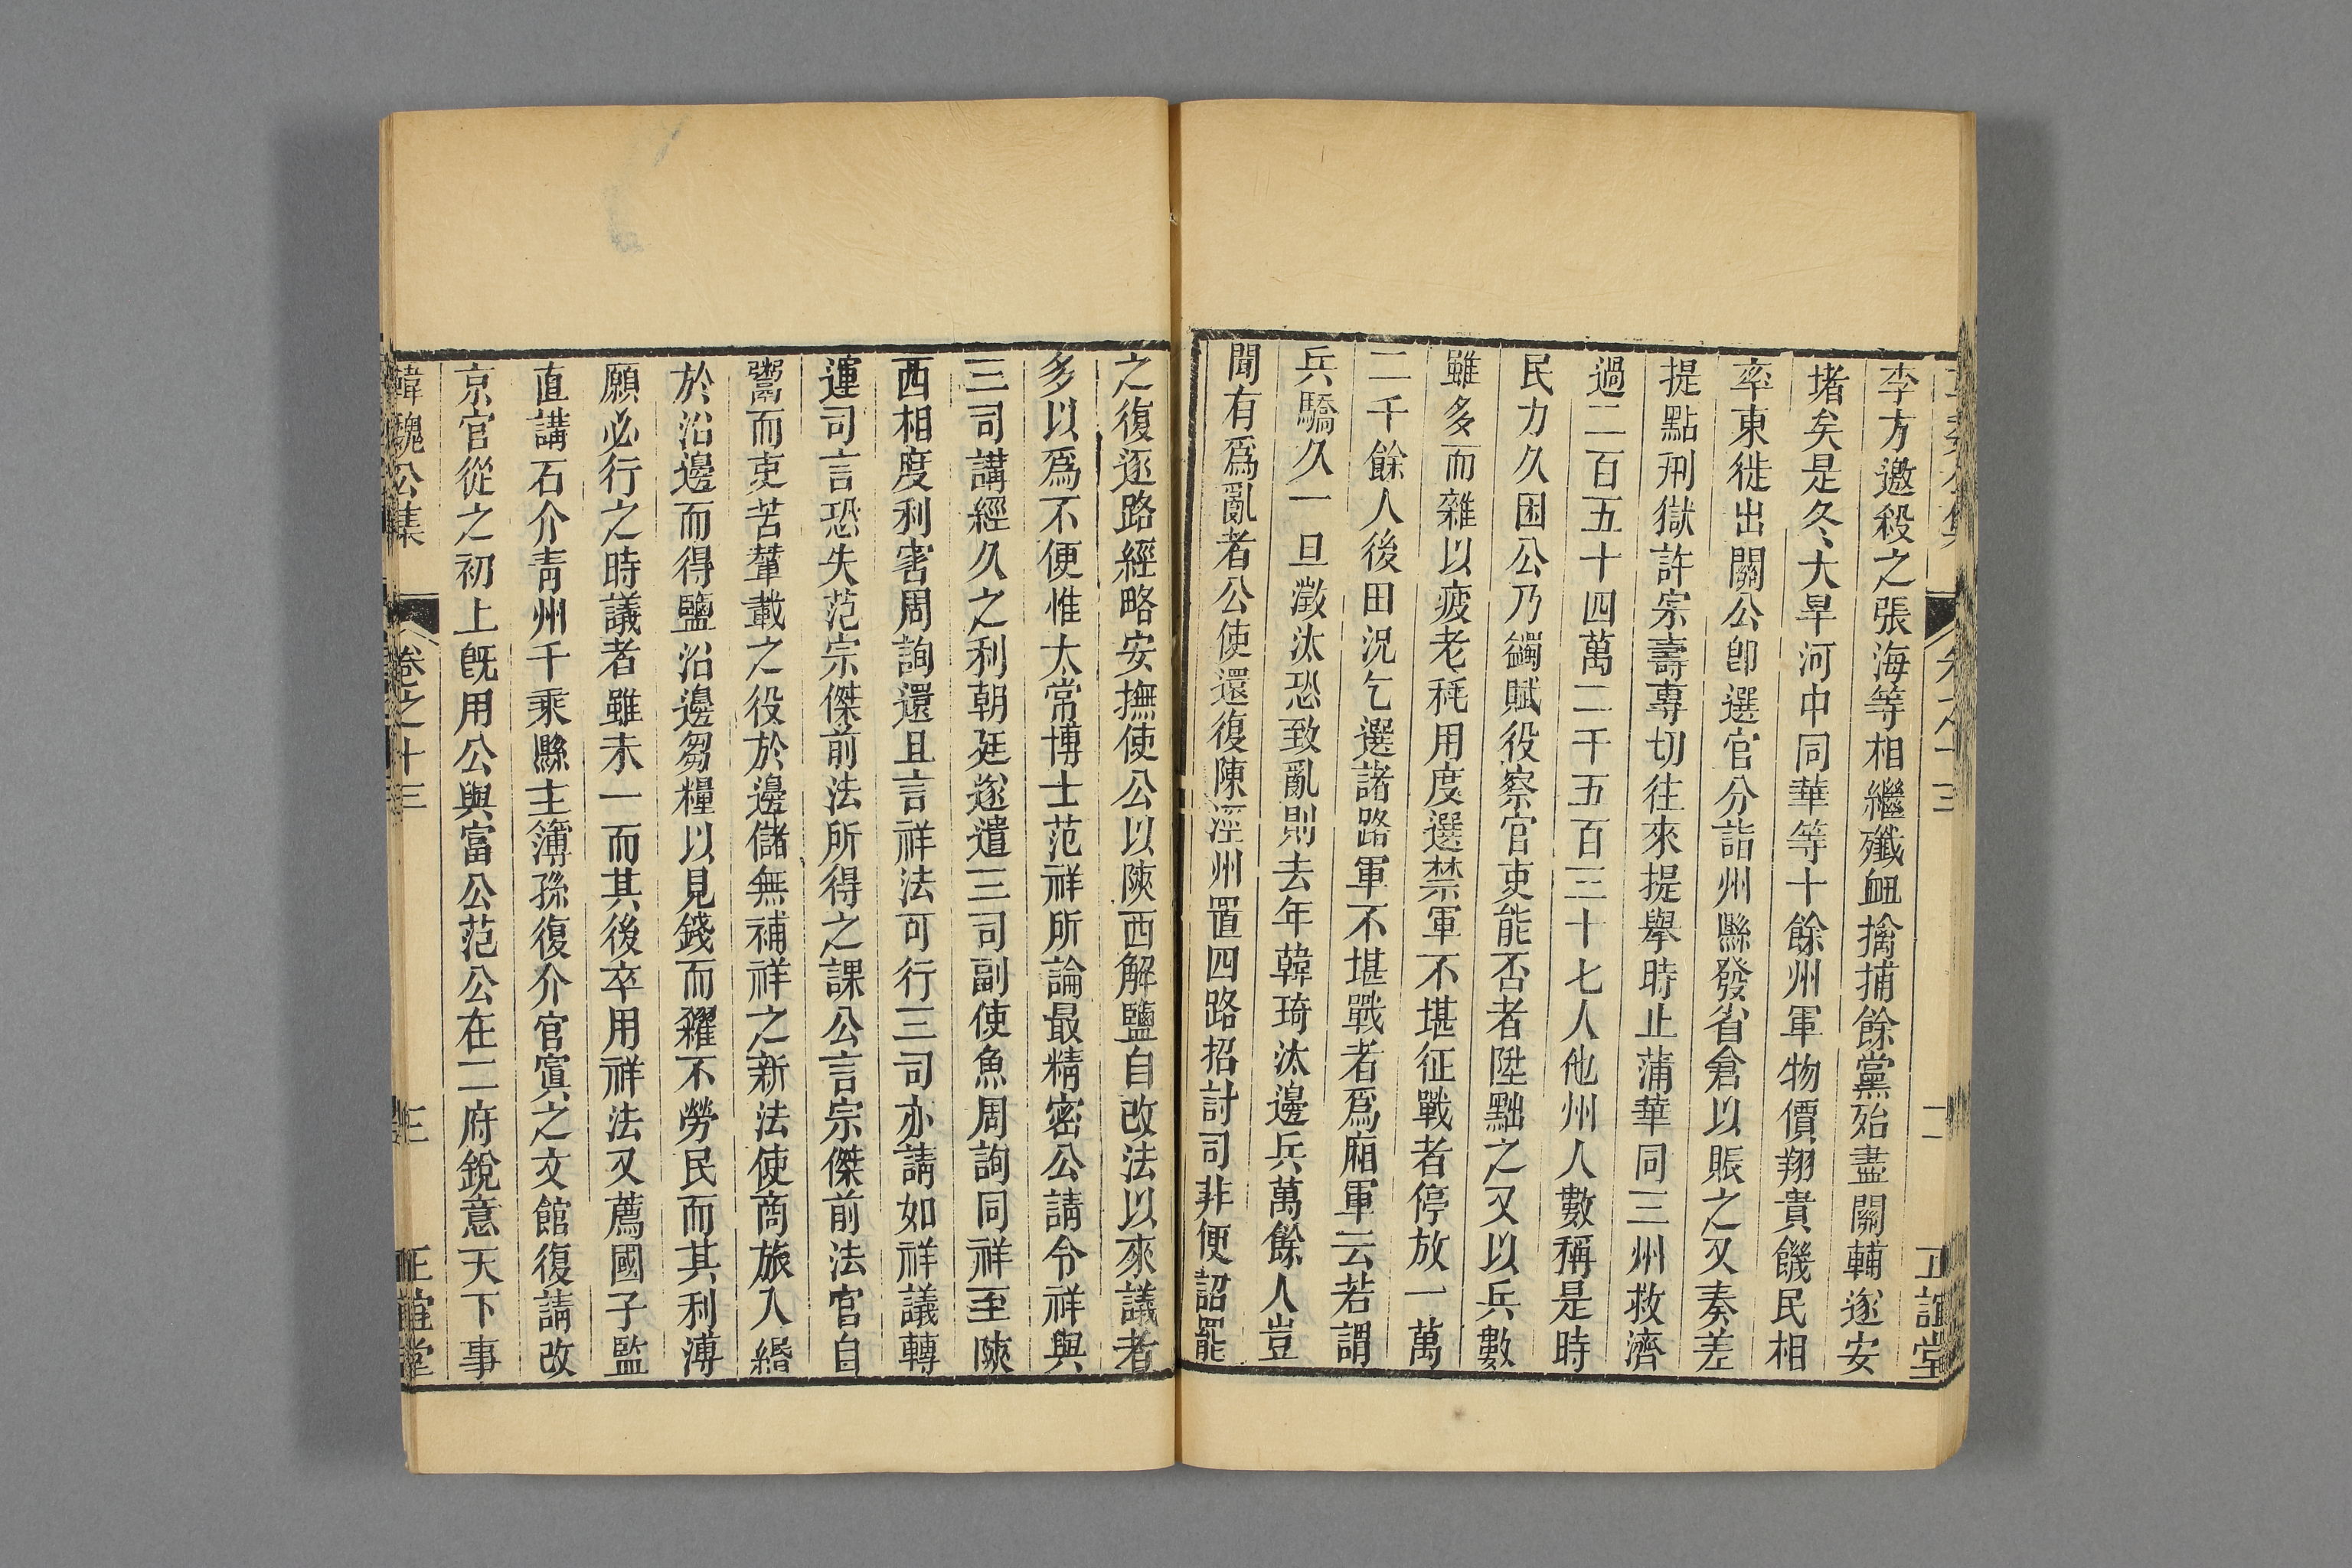 李方邀殺之張海等相繼殲衄擒捕餘黨殆盡關輔遂安
堵矣是冬大旱河中同華等十餘州軍物價翔貴饑民相
率東徙出關公卽選官分詣州縣發省倉以賑之又奏差
提點刑獄許宗壽專切往來提舉時止蒲華同三州救濟
過二百五十四萬二千五百三十七人他州人數稱是時
民力久困公乃蠲賦役察官吏能否者陞黜之又以兵數
雖多而雜以疲老耗用度選禁軍不堪征戰者停放一萬
二千餘人後田況乞選諸路軍不堪戰者爲廂軍云若謂
兵驕久一旦澂汰恐致亂則去年韓琦汰邊兵萬餘人豈
聞有爲亂者公使還復陳涇州置四路招討司非便詔罷
之復逐路經略安撫使公以陝西解鹽自改法以來議者
多以爲不便惟太常博士范祥所論最精密公請令祥與
三司講經久之利朝廷遂遣三司副使魚周詢同祥至陝
西相度利害周詢還且言祥法可行三司亦請如祥議轉
運司言恐失范宗傑前法所得之課公言宗傑前法官自
鬻而吏苦輦載之役於邊儲無補祥之新法使商旅入緡
於沿邊而得鹽沿邊芻糧以見錢而糴不勞民而其利溥
願必行之時議者雖未一而其後卒用祥法又薦國子監
直講石介靑州千乘縣主簿孫復介官寘之文館復請改
京官從之初上旣用公與富公范公在二府銳意天下事
韓魏公集 卷之十三 三 正誼堂